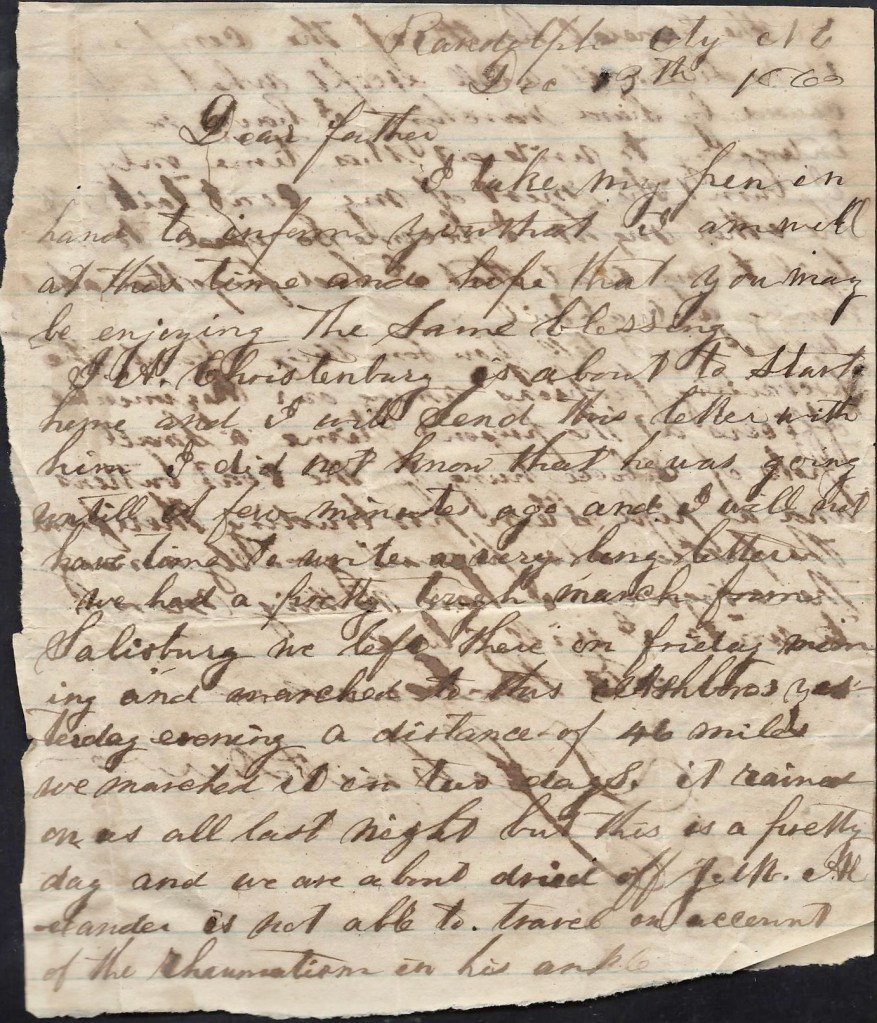 Randolph City N C
Dec 13th 1863
Dear father
I take my pen in
hand to inform you that I am well
at this time and hope that you may
be enjoying the same blessing
Christenbury is about to start
home and I will send this letter with
him I did not know that he was going
untill a few minutes ago and I will not
have time to write a very long letter
we had a pretty tough march from
Salisbury we left there on friday morn
ing and marched to this Ashboro yes-
terday evening a distance of 46 miles
we marched it in two days. it rained
on us all last night but this is a pretty
day and we are about dried off
-exander is not able to travel on account
of the rhumatism in his ankle